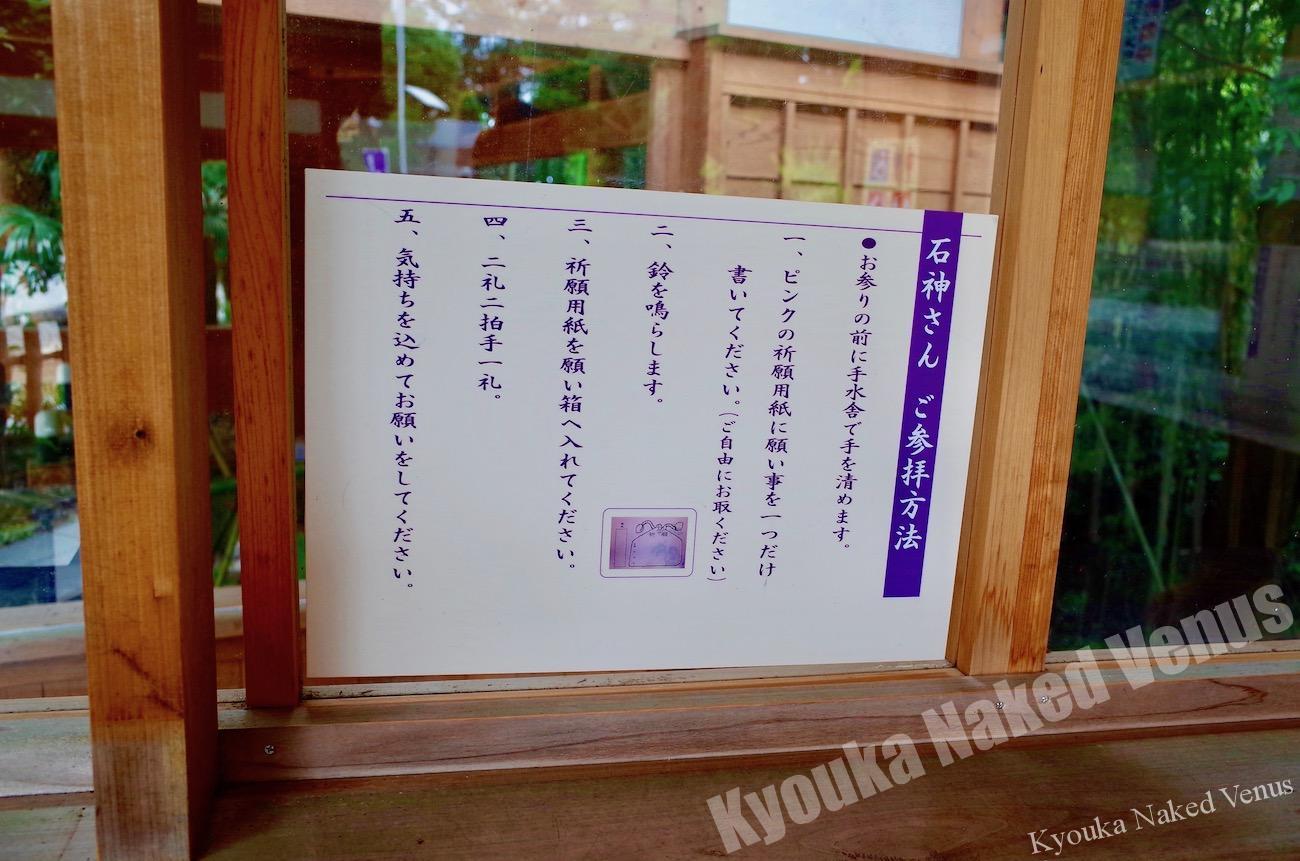 石神さん ご参拝方法
●お参りの前に手水舎で手を清めます。
一、ピンクの祈願用紙に願い事を一つだけ
書いてください。(ご自由にお取ください)
二、鈴を鳴らします。
三、祈願用紙を願い箱へ入れてください。
四、二礼二拍手一礼。
五、気持ちを込めてお願いをしてください。
Kyouka Naked Venus
Kyouka Naked Venus